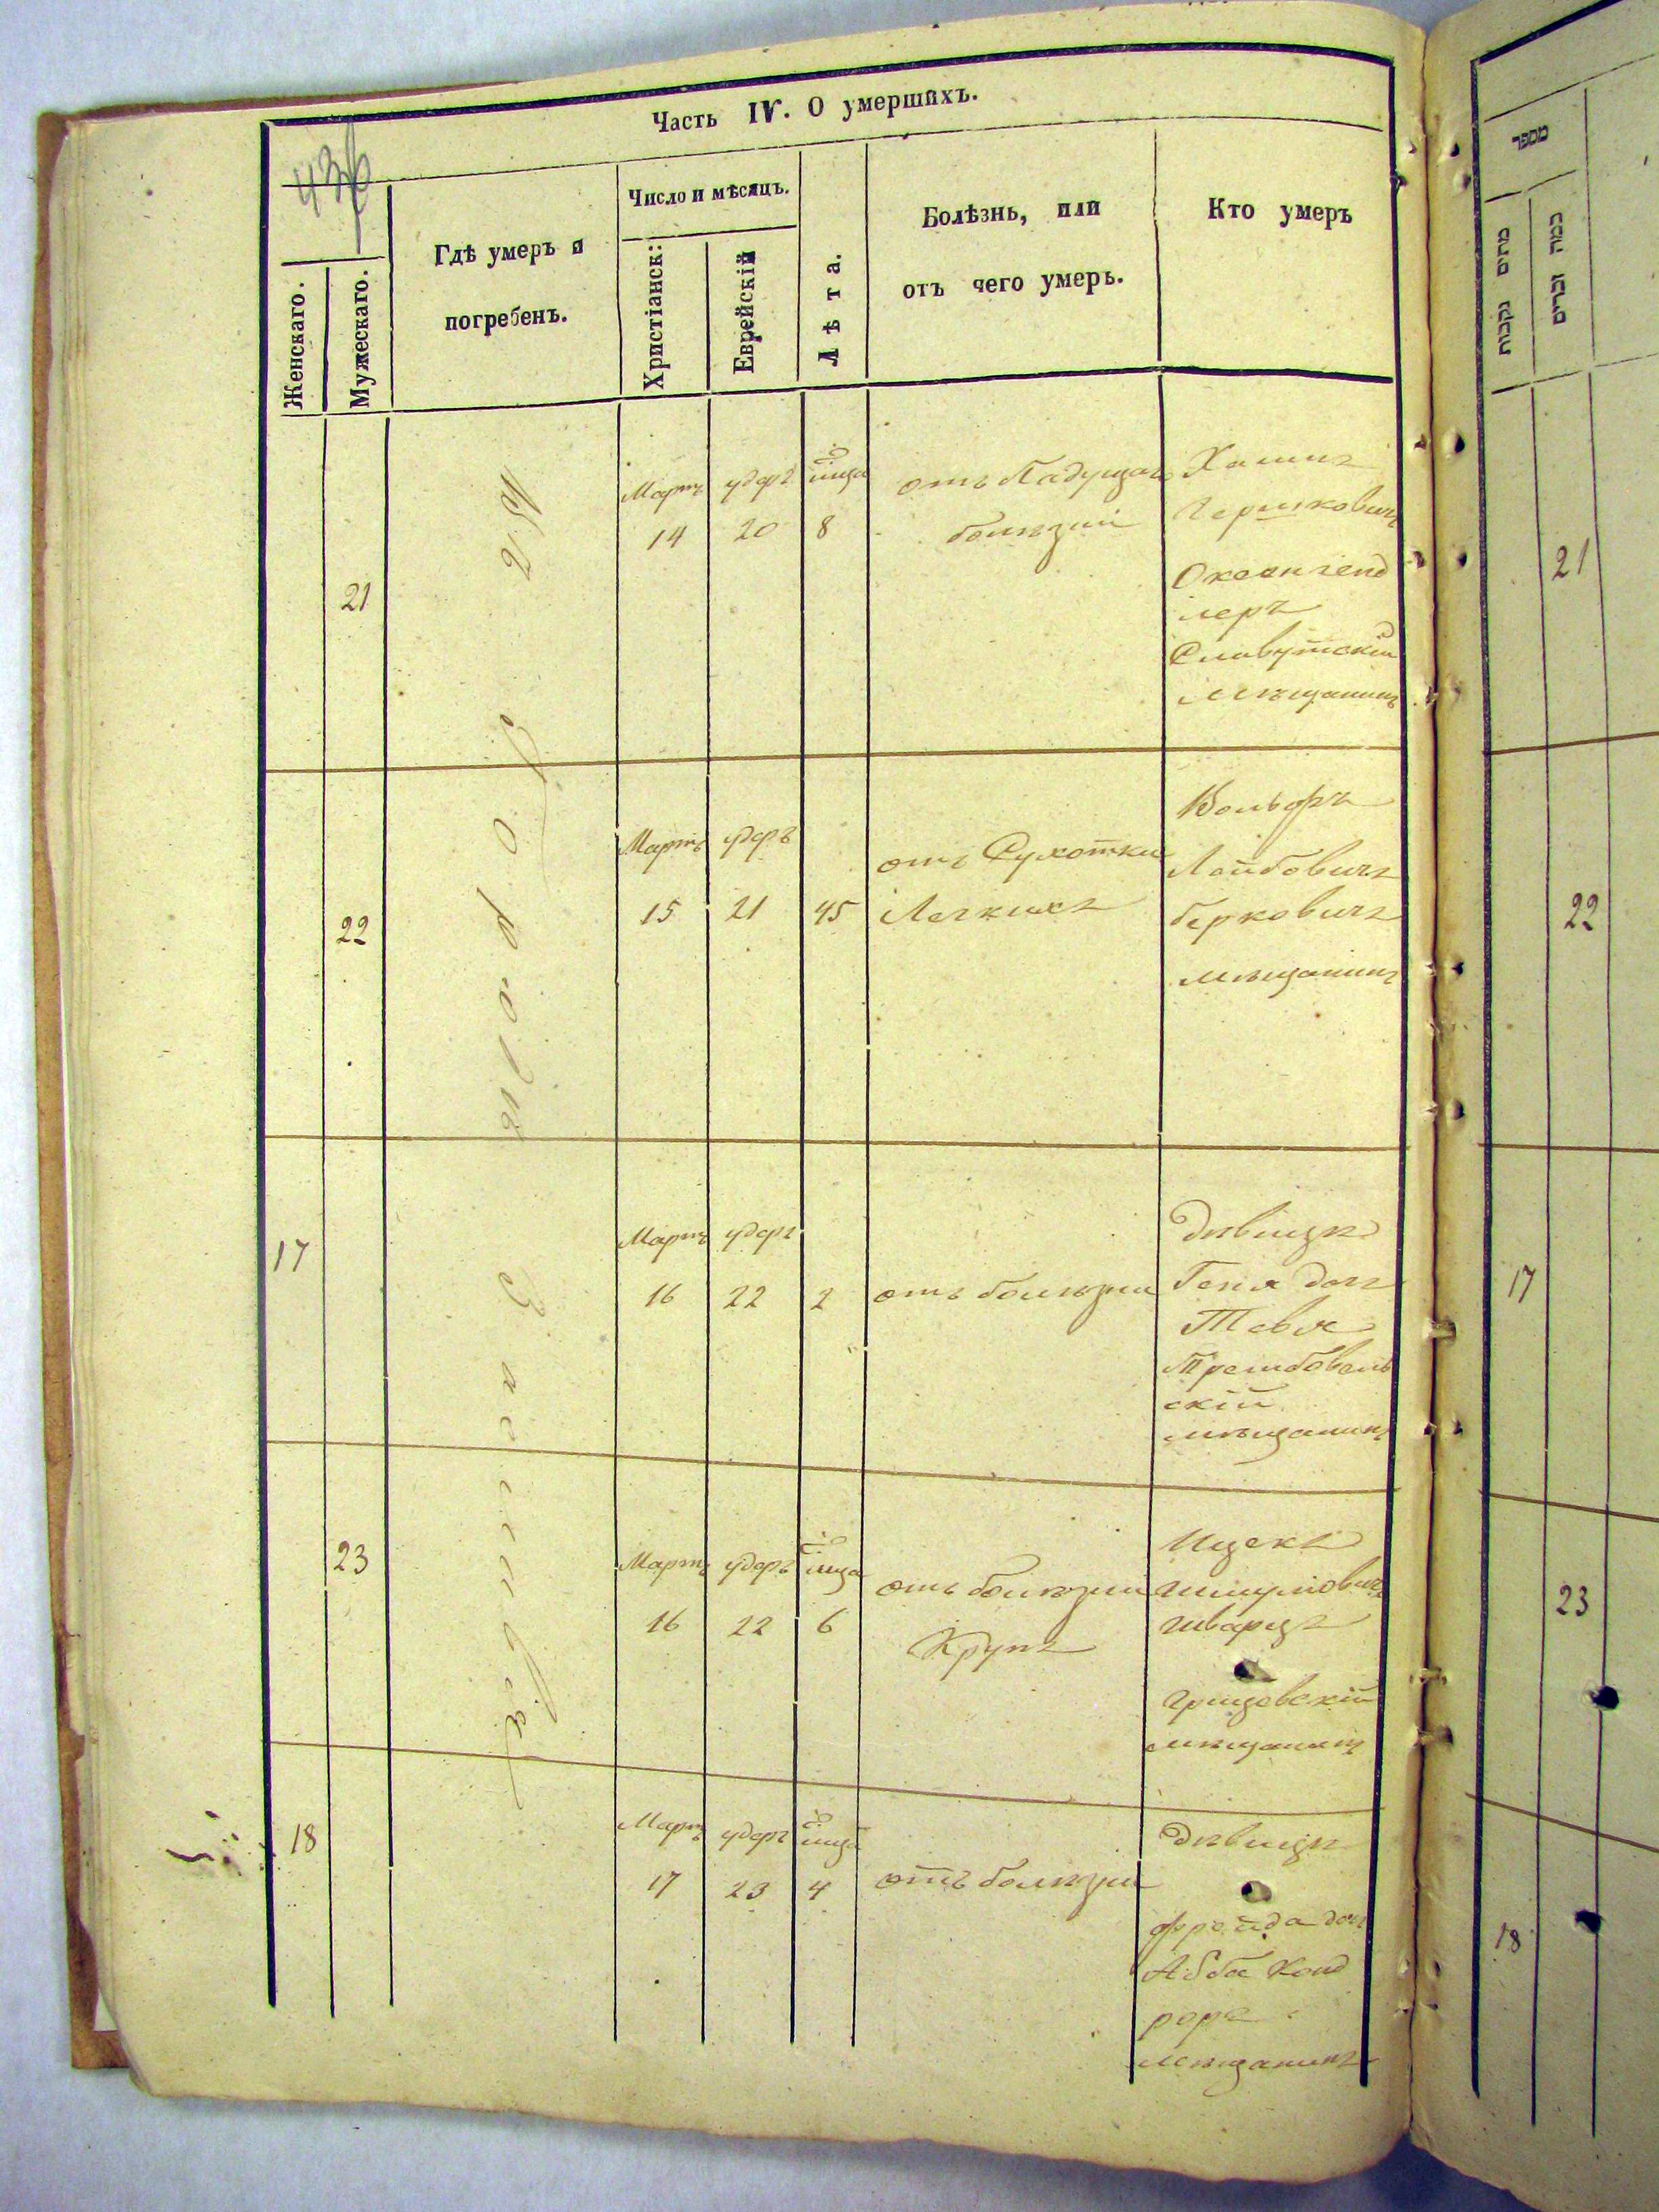 Часть IV. О умершихъ.
436
Женскаго.
Мужескаго.
Гдѣ умеръ и
погребенъ.
Число и мѣсяцъ.
Христіанск:
Еврейскій
Лѣта.
Болѣзнь, или
отъ чего умеръ.
Кто умеръ
Въ городѣ
21
Мартъ
14
удеръ
20
8
отъ Падущей
болѣзни
Хаимъ
Гершковичъ
леръ
Славутскій
мѣщанинъ
22
Мартъ
15
удеръ
21
45
отъ Сухотки
Легкихъ
Вольфъ
Лейбовичъ
Берковичъ
мѣщанинъ
17
Мартъ
16
удеръ
22
2
отъ болѣзни
Дѣвица
Геня доч
Тевя
Трембовель
скій
мѣщанинъ
23
Мартъ
16
удеръ
22
6
отъ болѣзни
Крупъ
Ицекъ
Шмулiовичъ
Шварцъ
Грицовскій
мѣщанинъ
18
Мартъ
17
удеръ
23
4
отъ болѣзни
Дѣвица
Фрейда доч
Абба Конд
роръ
мѣщанинъ
מספר
מתים נקבות
כמה זכרים
21
22
17
23
18